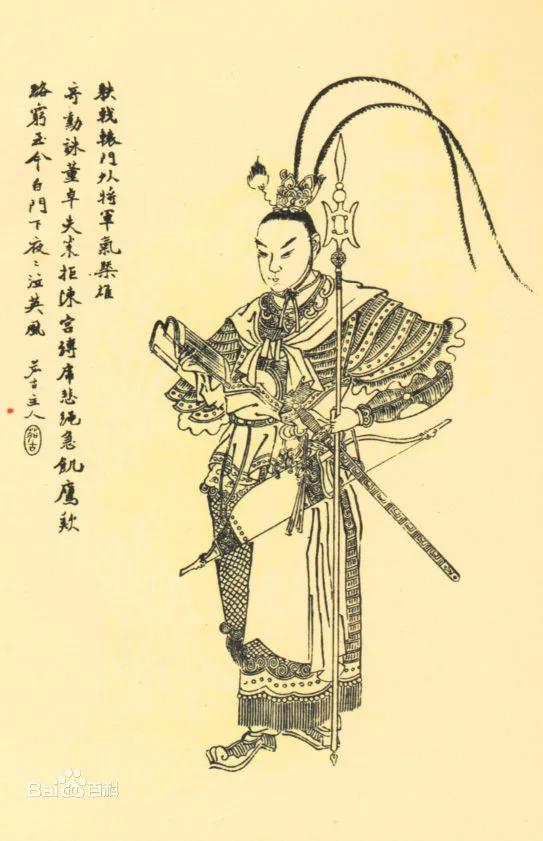 戟轅門外將軍氣槩雄
奇勳誅董卓失策拒陳宮縛虎悲繩急飢鷹歎
路窮至今白門下夜〻泣英風 古主人
Bai百科